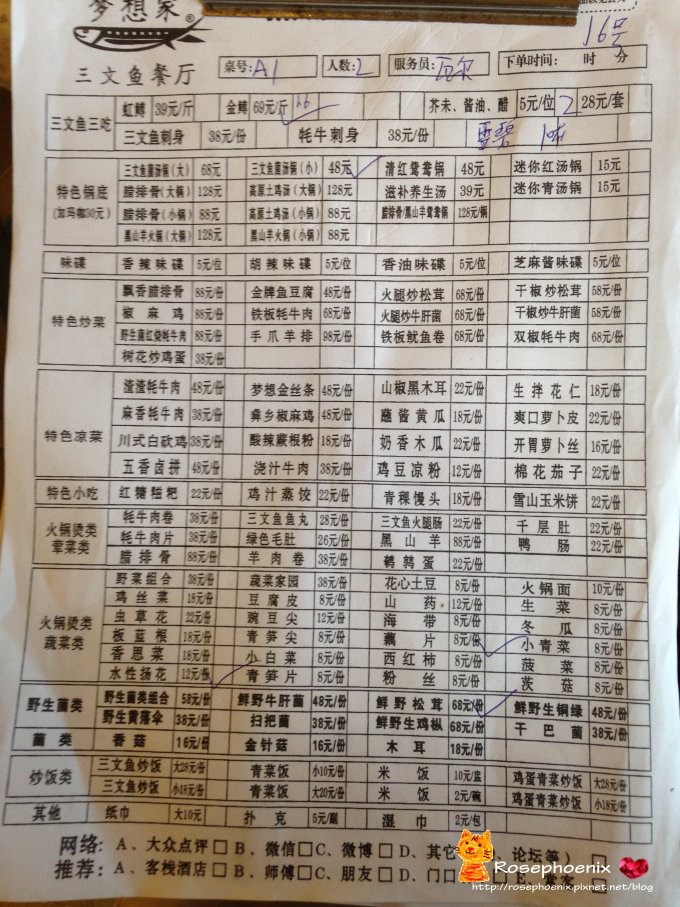 梦想家®
三文鱼餐厅 桌号: A1 人数: 2 服务员: 下单时间: 16号 时 分
三文鱼三吃 虹鳟 39元/斤 金鳟 69元/斤 芥末、酱油、醋 5元/位 2 28元/套
三文鱼刺身 38元/份 牦牛刺身 38元/份 雪碧
特色锅底 (加玛咖30元)
三文鱼菌汤锅(大) 68元 三文鱼菌汤锅(小) 48元 清红鸳鸯锅 48元 迷你红汤锅 15元
腊排骨(大锅) 128元 高原土鸡汤(大锅) 128元 滋补养生汤 39元 迷你青汤锅 15元
腊排骨(小锅) 88元 高原土鸡汤(小锅) 88元 腊排骨/黑山羊鸳鸯锅 128元/锅
黑山羊火锅(大锅) 128元 黑山羊火锅(小锅) 88元
味碟 香辣味碟 5元/位 胡辣味碟 5元/位 香油味碟 5元/位 芝麻酱味碟 5元/位
特色炒菜
飘香腊排骨 88元/份 金牌鱼豆腐 48元/份 火腿炒松茸 68元/份 干椒炒松茸 58元/份
椒麻鸡 88元/份 铁板牦牛肉 68元/份 火腿炒牛肝菌 68元/份 干椒炒牛肝菌 58元/份
野生菌红烧牦牛肉 88元/份 手爪羊排 98元/份 铁板鱿鱼卷 68元/份 双椒牦牛肉 68元/份
树花炒鸡蛋 38元/份
特色凉菜
渣渣牦牛肉 48元/份 梦想金丝条 48元/份 山椒黑木耳 22元/份 生拌花仁 18元/份
麻香牦牛肉 38元/份 彝乡椒麻鸡 48元/份 蘸酱黄瓜 18元/份 爽口萝卜皮 22元/份
川式白砍鸡 38元/份 酸辣蕨根粉 18元/份 奶香木瓜 22元/份 开胃萝卜丝 16元/份
五香卤拼 48元/份 浇汁牛肉 38元/份 鸡豆凉粉 12元/份 棉花茄子 22元/份
特色小吃 红糖糍粑 22元/份 鸡汁蒸饺 22元/份 青稞馒头 18元/份 雪山玉米饼 22元/份
火锅烫类 荤菜类
牦牛肉卷 38元/份 三文鱼鱼丸 28元/份 三文鱼火腿肠 22元/份 千层肚 22元/份
牦牛肉片 38元/份 绿色毛肚 26元/份 黑山羊 88元/份 鸭肠 22元/份
腊排骨 88元/份 羊肉卷 38元/份 鹌鹑蛋 22元/份
火锅烫类 蔬菜类
野菜组合 38元/份 蔬菜家园 38元/份 花心土豆 8元/份 火锅面 10元/份
鸡丝菜 18元/份 豆腐皮 8元/份 山药 12元/份 生菜 8元/份
虫草花 22元/份 豌豆尖 12元/份 海带 8元/份 冬瓜 8元/份
板蓝根 18元/份 青笋尖 8元/份 藕片 8元/份 小青菜 8元/份
香思菜 18元/份 小白菜 8元/份 西红柿 8元/份 菠菜 8元/份
水性扬花 12元/份 青笋片 8元/份 粉丝 8元/份 茨菇 8元/份
野生菌类 野生菌类组合 58元/份 鲜野牛肝菌 48元/份 鲜野松茸 68元/份 鲜野生铜绿 48元/份
野生黄落伞 38元/份 扫把菌 38元/份 鲜野生鸡枞 68元/份 干巴菌 38元/份
菌类 香菇 16元/份 金针菇 16元/份 木耳 18元/份
炒饭类 三文鱼炒饭 大28元/份 青菜饭 小10元/份 米饭 10元/盅 鸡蛋青菜炒饭 大28元/份
三文鱼炒饭 小18元/份 青菜饭 大20元/份 米饭 2元/碗 鸡蛋青菜炒饭 小18元/份
其他 纸巾 大10元 扑克 5元/副 湿巾 2元/包
网络: A、大众点评□ B、微信□ C、微博□ D、其它 论坛等)
推荐: A、客栈酒店□ B、师傅□ C、朋友□ D、门口 E、
Rosephoenix
http://rosephoenix.pixnet.net/blog